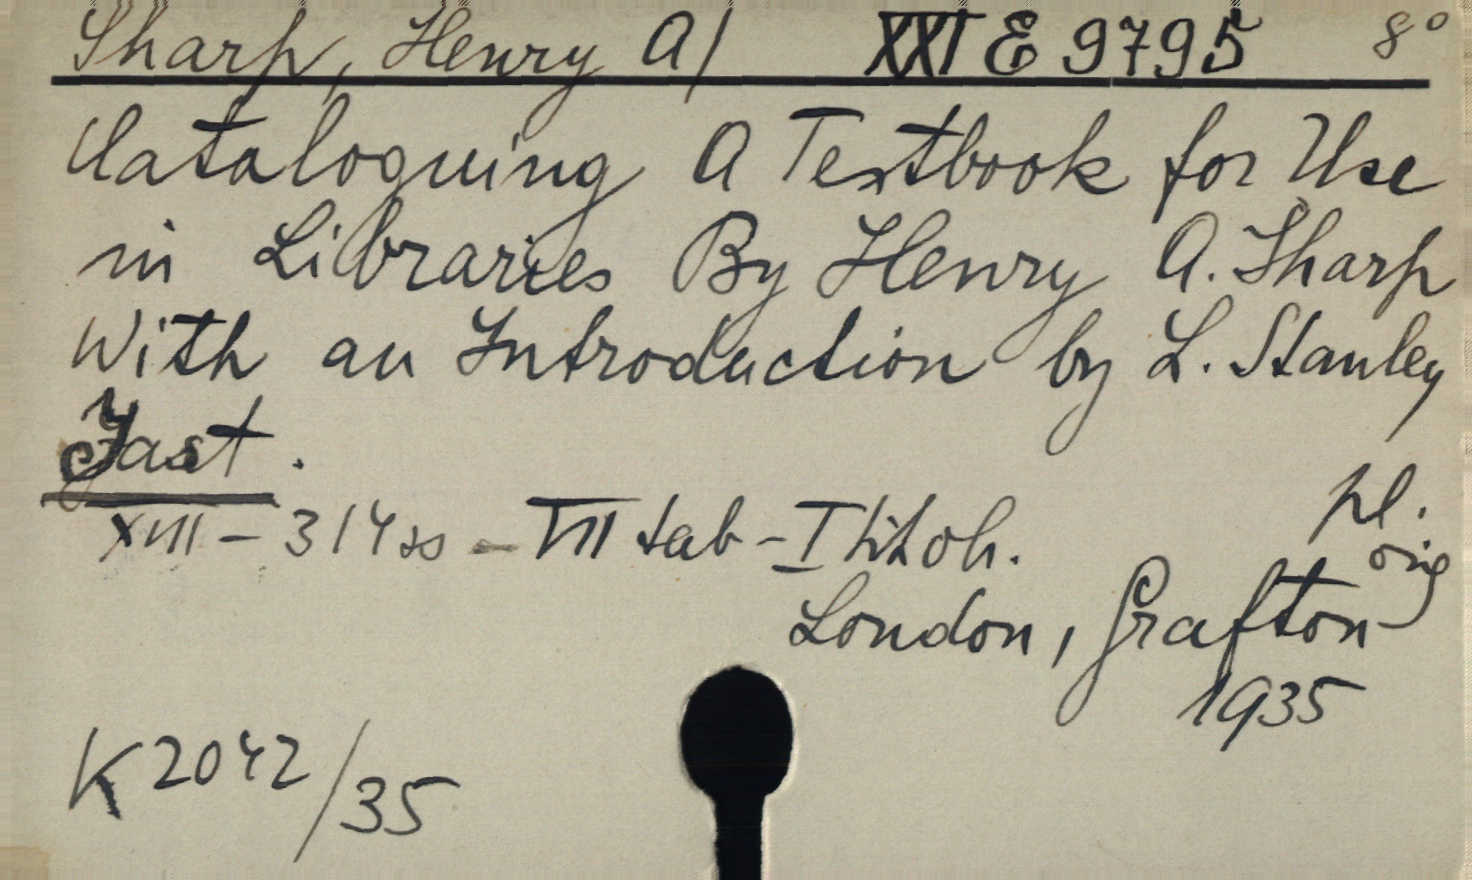 Sharp, Henry A/ XXI E 9795 8°
Cataloguing A Textbook for Use
in Libraries By Henry A. Sharp
With an Introduction by L. Stanley
Jast.
XIII - 314 ss - VII tab - I titob. pl.
orig
London, Grafton
1935
K 2042/35